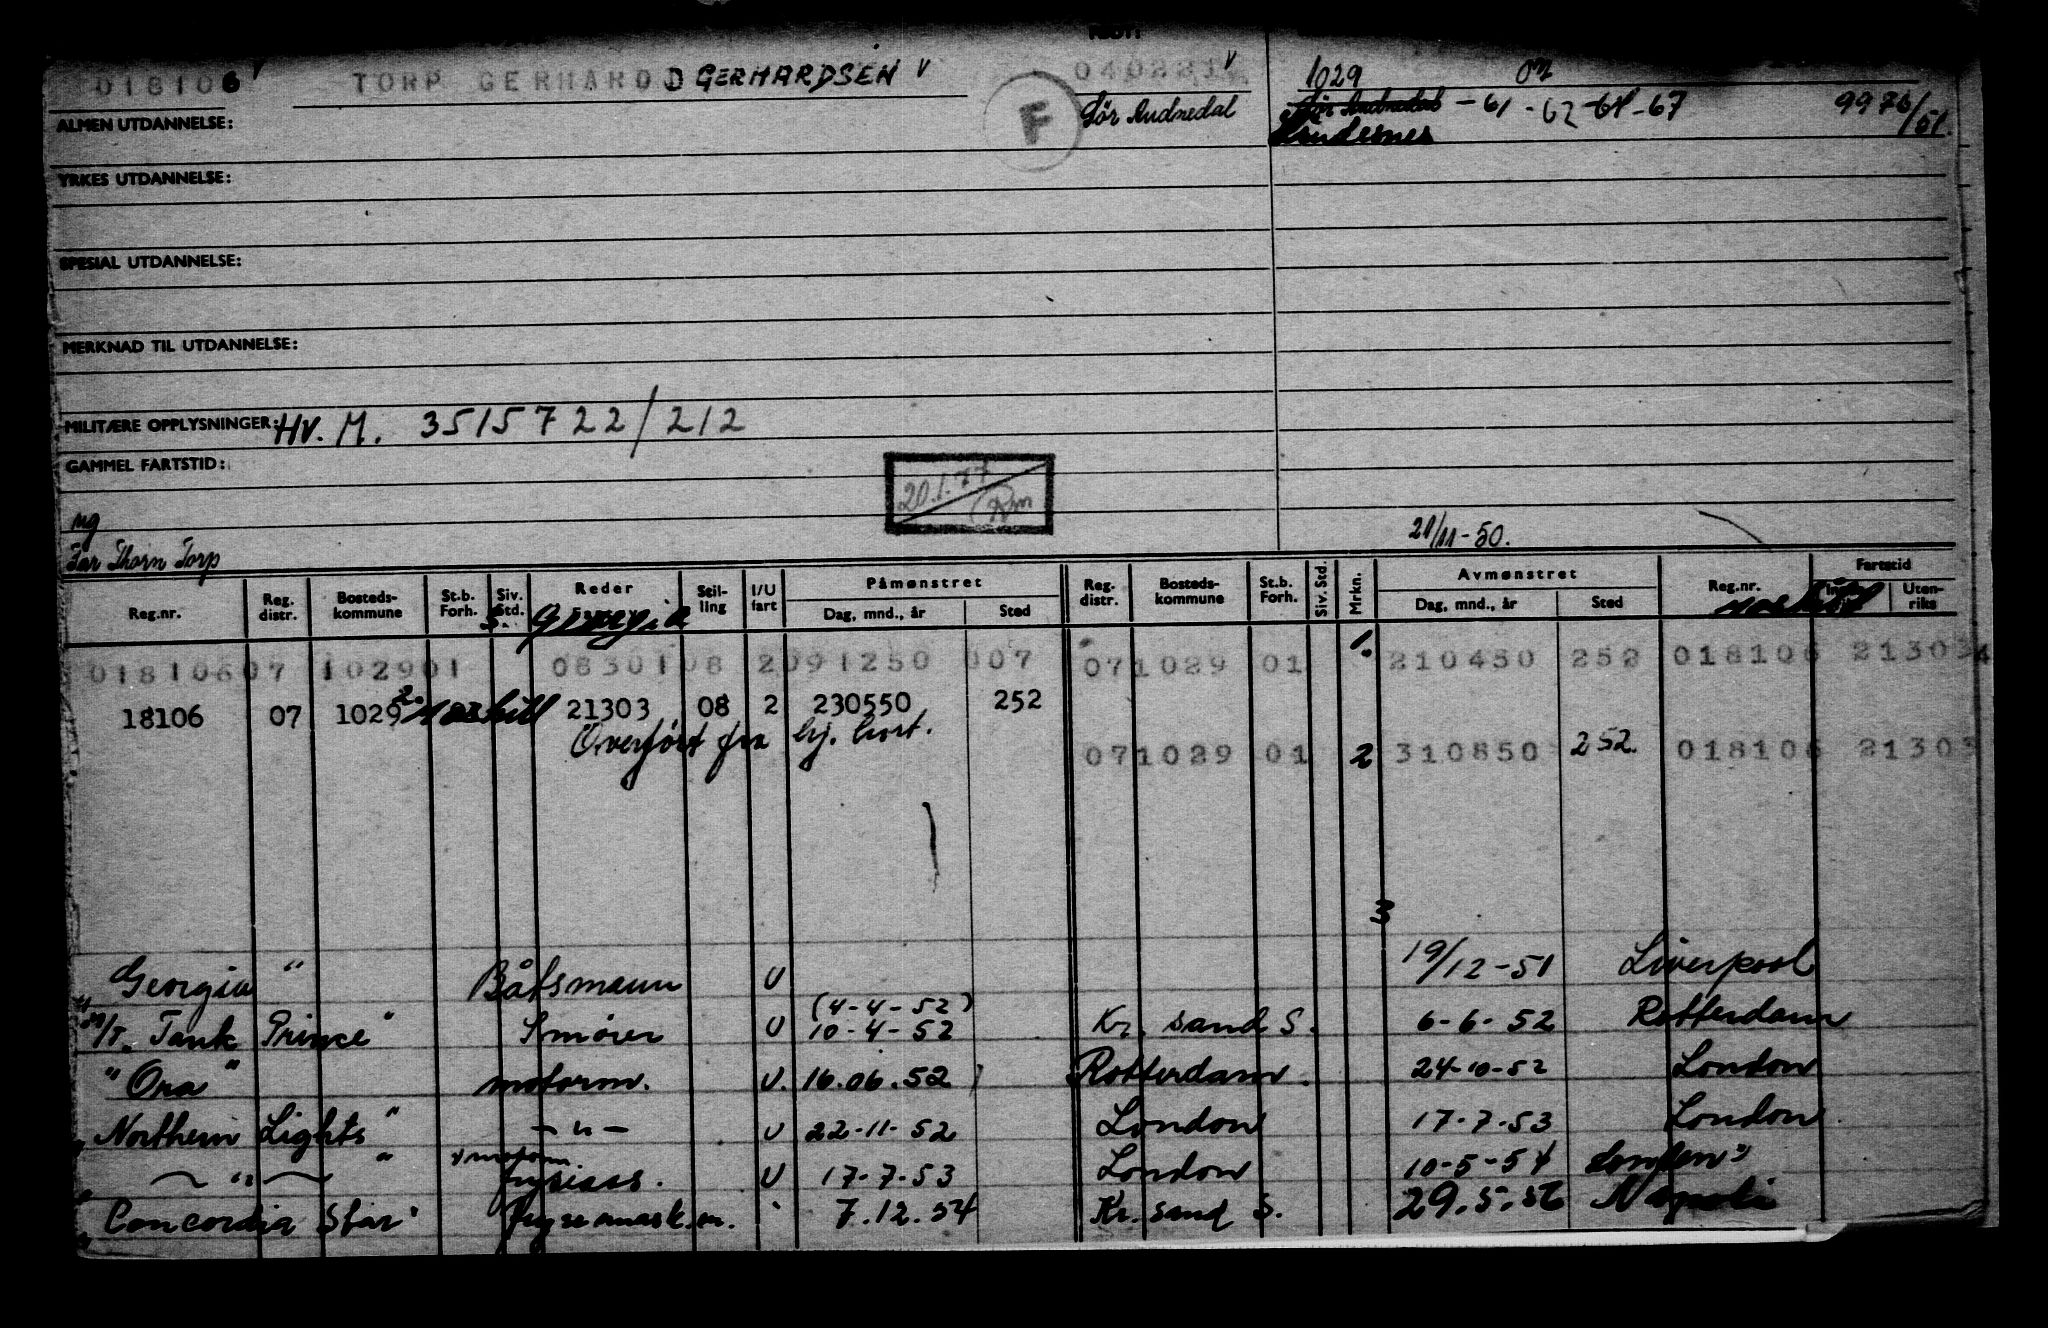 018106 v TORP GERHARD GERHARDSEN v 040221 v 1029
F Sör Audnedal Sör Audnedal -61 - 62 -64-67 9976/51.
Lindesnes
ALMEN UTDANNELSE:
YRKES UTDANNELSE:
SPESIAL UTDANNELSE:
MERKNAD TIL UTDANNELSE:
MILITÆRE OPPLYSNINGER: HV. M. 3515722/212
GAMMEL FARTSTID:
20.1.77
ug
Far Thorn Torp
21/11-50.
Reg.nr. Reg. distr. Bosteds-kommune St.b. Forh. Siv. Std. Reder Stil-ling I/U fart Påmønstret Dag, mnd., år Sted Reg. distr. Bosteds-kommune St.b. Forh. Siv. Std. Mrkn. Avmønstret Dag, mnd., år Sted Reg.nr. Fartstid Uten-riks
S. Georgia
018106 07 1029 01 08301 08 2 091250 007 07 1029 01 1. 210450 252 018106 21303
18106 07 1029 21303 08 2 230550 252
Överfört fra hj. kort.
07 1029 01 2 310850 252. 018106 21303
3
"Georgia" Båtsmann U 19/12-51 Liverpool
(4-4-52)
"M/T. Tank Prince" Smører U 10-4-52 Kr. sand S. 6-6-52 Rotterdam
"Ora" motorm. U. 16.06.52 Rotterdam. 24-10-52 London
"Northern Lights" -"- U 22-11-52 London 17-7-53 London
-"- " motorm.
fryseass. U 17-7-53 London 10-5-54 London"
"Concordia Star" frysemask.m. " 7.12.54 Kr. sand S. 29.5.56 Napoli